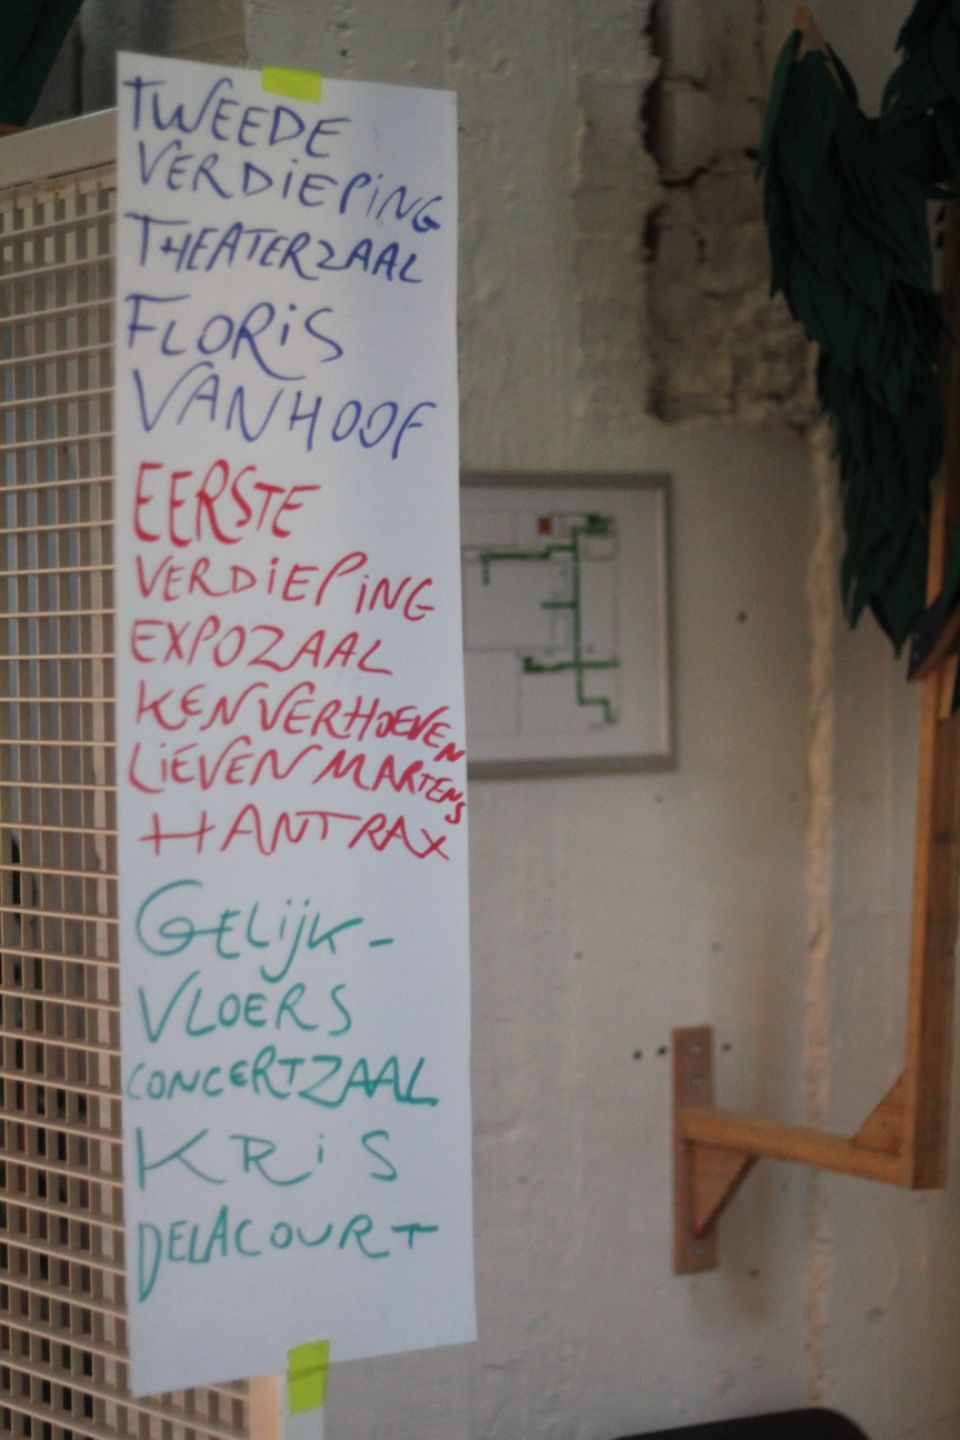 TWEEDE
VERDiEPiNG
THEATERZAAL
FLORiS
VANHOOF
EERSTE
VERDiEPiNG
EXPOZAAL
KEN VERHOEVEN
LiEVEN MARTENS
HANTRAX
GELijK-
VLOERS
CONCERTZAAL
KRiS
DELACOURT